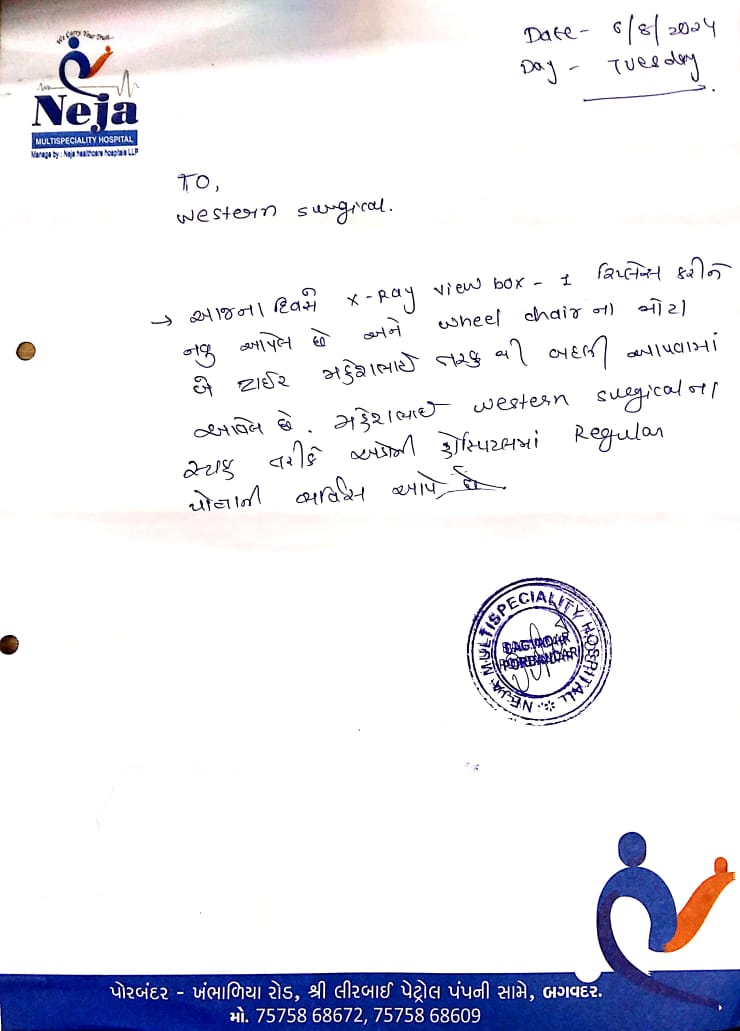 We Carry Your Trust...
Neja
MULTISPECIALITY HOSPITAL
Manage by : Neja healthcare hospitals LLP
Date - 6/8/2024
Day - Tuesday
TO,
Western surgical.
→ આજના દિવસે X-Ray view box - 1 રિપ્લેસ કરીને
નવુ આપેલ છે અને wheel chair ના મોટા
બે ટાઈર મહેશભાઈ તરફ થી બદલી આપવામાં
આવેલ છે. મહેશભાઈ western surgical ના
સ્ટાફ તરીકે અમારી હોસ્પિટલમાં Regular
પોતાની સર્વિસ આપે છે.
NEJA MULTISPECIALITY HOSPITALL
BAGVADAR
PORBANDAR
પોરબંદર - ખંભાળિયા રોડ, શ્રી લીરબાઈ પેટ્રોલ પંપની સામે, બગવદર.
મો. 75758 68672, 75758 68609